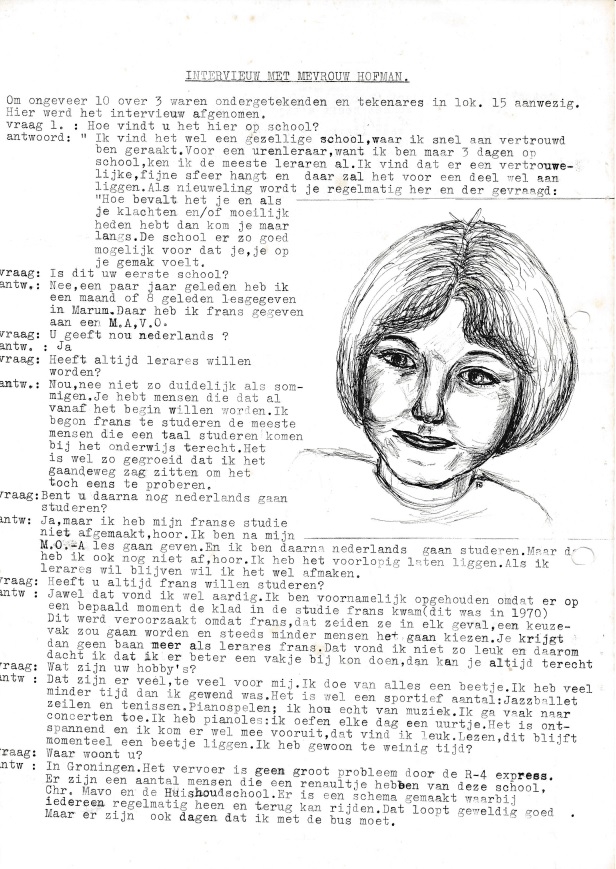 INTERVIEUW MET MEVROUW HOFMAN.
Om ongeveer 10 over 3 waren ondergetekenden en tekenares in lok. 15 aanwezig.
Hier werd het interview afgenomen.
vraag 1. : Hoe vindt u het hier op school?
antwoord: " Ik vind het wel een gezellige school,waar ik snel aan vertrouwd
ben geraakt.Voor een urenleraar,want ik ben maar 3 dagen op
school,ken ik de meeste leraren al.Ik vind dat er een vertrouwe-
lijke,fijne sfeer hangt en daar zal het voor een deel wel aan
liggen.Als nieuweling wordt je regelmatig her en der gevraagd:
"Hoe bevalt het je en als
je klachten en/of moeilijk
heden hebt dan kom je maar
langs.De school er zo goed
mogelijk voor dat je,je op
je gemak voelt.
vraag: Is dit uw eerste school?
antw.: Nee,een paar jaar geleden heb ik
een maand of 8 geleden lesgegeven
in Marum.Daar heb ik frans gegeven
aan een M.A,V.O.
vraag: U geeft nou nederlands ?
antw. : Ja
vraag: Heeft altijd lerares willen
worden?
antw.: Nou,nee niet zo duidelijk als som-
migen.Je hebt mensen die dat al
vanaf het begin willen worden.Ik
begon frans te studeren de meeste
mensen die een taal studeren komen
bij het onderwijs terecht.Het
is wel zo gegroeid dat ik het
gaandeweg zag zitten om het
toch eens te proberen.
vraag:Bent u daarna nog nederlands gaan
studeren?
antw: Ja,maar ik heb mijn franse studie
niet afgemaakt,hoor.Ik ben na mijn
M.O.-A les gaan geven.En ik ben daarna nederlands gaan studeren.Maar d
heb ik ook nog niet af,hoor.Ik heb het voorlopig laten liggen.Als ik
lerares wil blijven wil ik het wel afmaken.
vraag: Heeft u altijd frans willen studeren?
antw : Jawel dat vond ik wel aardig.Ik ben voornamelijk opgehouden omdat er op
een bepaald moment de klad in de studie frans kwam(dit was in 1970)
Dit werd veroorzaakt omdat frans,dat zeiden ze in elk geval,een keuze-
vak zou gaan worden en steeds minder mensen het gaan kiezen.Je krijgt
dan geen baan meer als lerares frans.Dat vond ik niet zo leuk en daarom
dacht ik dat ik er beter een vakje bij kon doen,dan kan je altijd terecht
vraag: Wat zijn uw hobby's?
antw : Dat zijn er veel,te veel voor mij.Ik doe van alles een beetje.Ik heb veel
minder tijd dan ik gewend was.Het is wel een sportief aantal:Jazzballet
zeilen en tenissen.Pianospelen; ik hou echt van muziek.Ik ga vaak naar
concerten toe.Ik heb pianoles:ik oefen elke dag een uurtje.Het is ont-
spannend en ik kom er wel mee vooruit,dat vind ik leuk.Lezen,dit blijft
momenteel een beetje liggen.Ik heb gewoon te weinig tijd?
vraag: Waar woont u?
antw : In Groningen.Het vervoer is geen groot probleem door de R-4 express.
Er zijn een aantal mensen die een renaultje hebben van deze school,
Chr. Mavo en de Huishoudschool.Er is een schema gemaakt waarbij
iedereen regelmatig heen en terug kan rijden.Dat loopt geweldig goed .
Maar er zijn ook dagen dat ik met de bus moet.